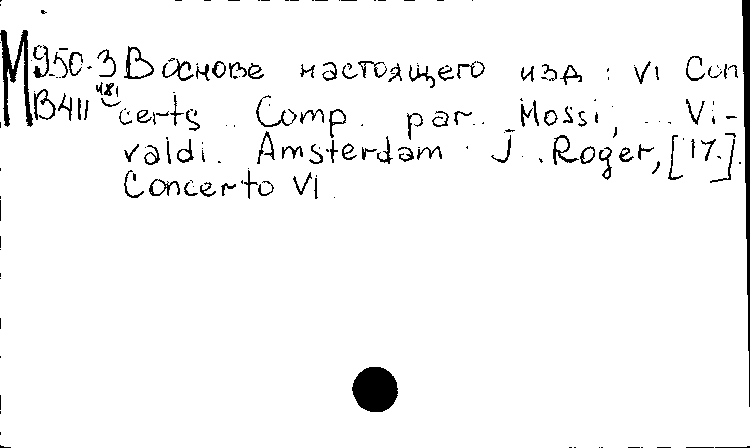 М950-3 В основе настоящего изд : VI Con
В411 certs .. Comp. par .. Mossi, ... Vi-
valdi. Amsterdam . J . Roger, [17..].
Concerto VI.